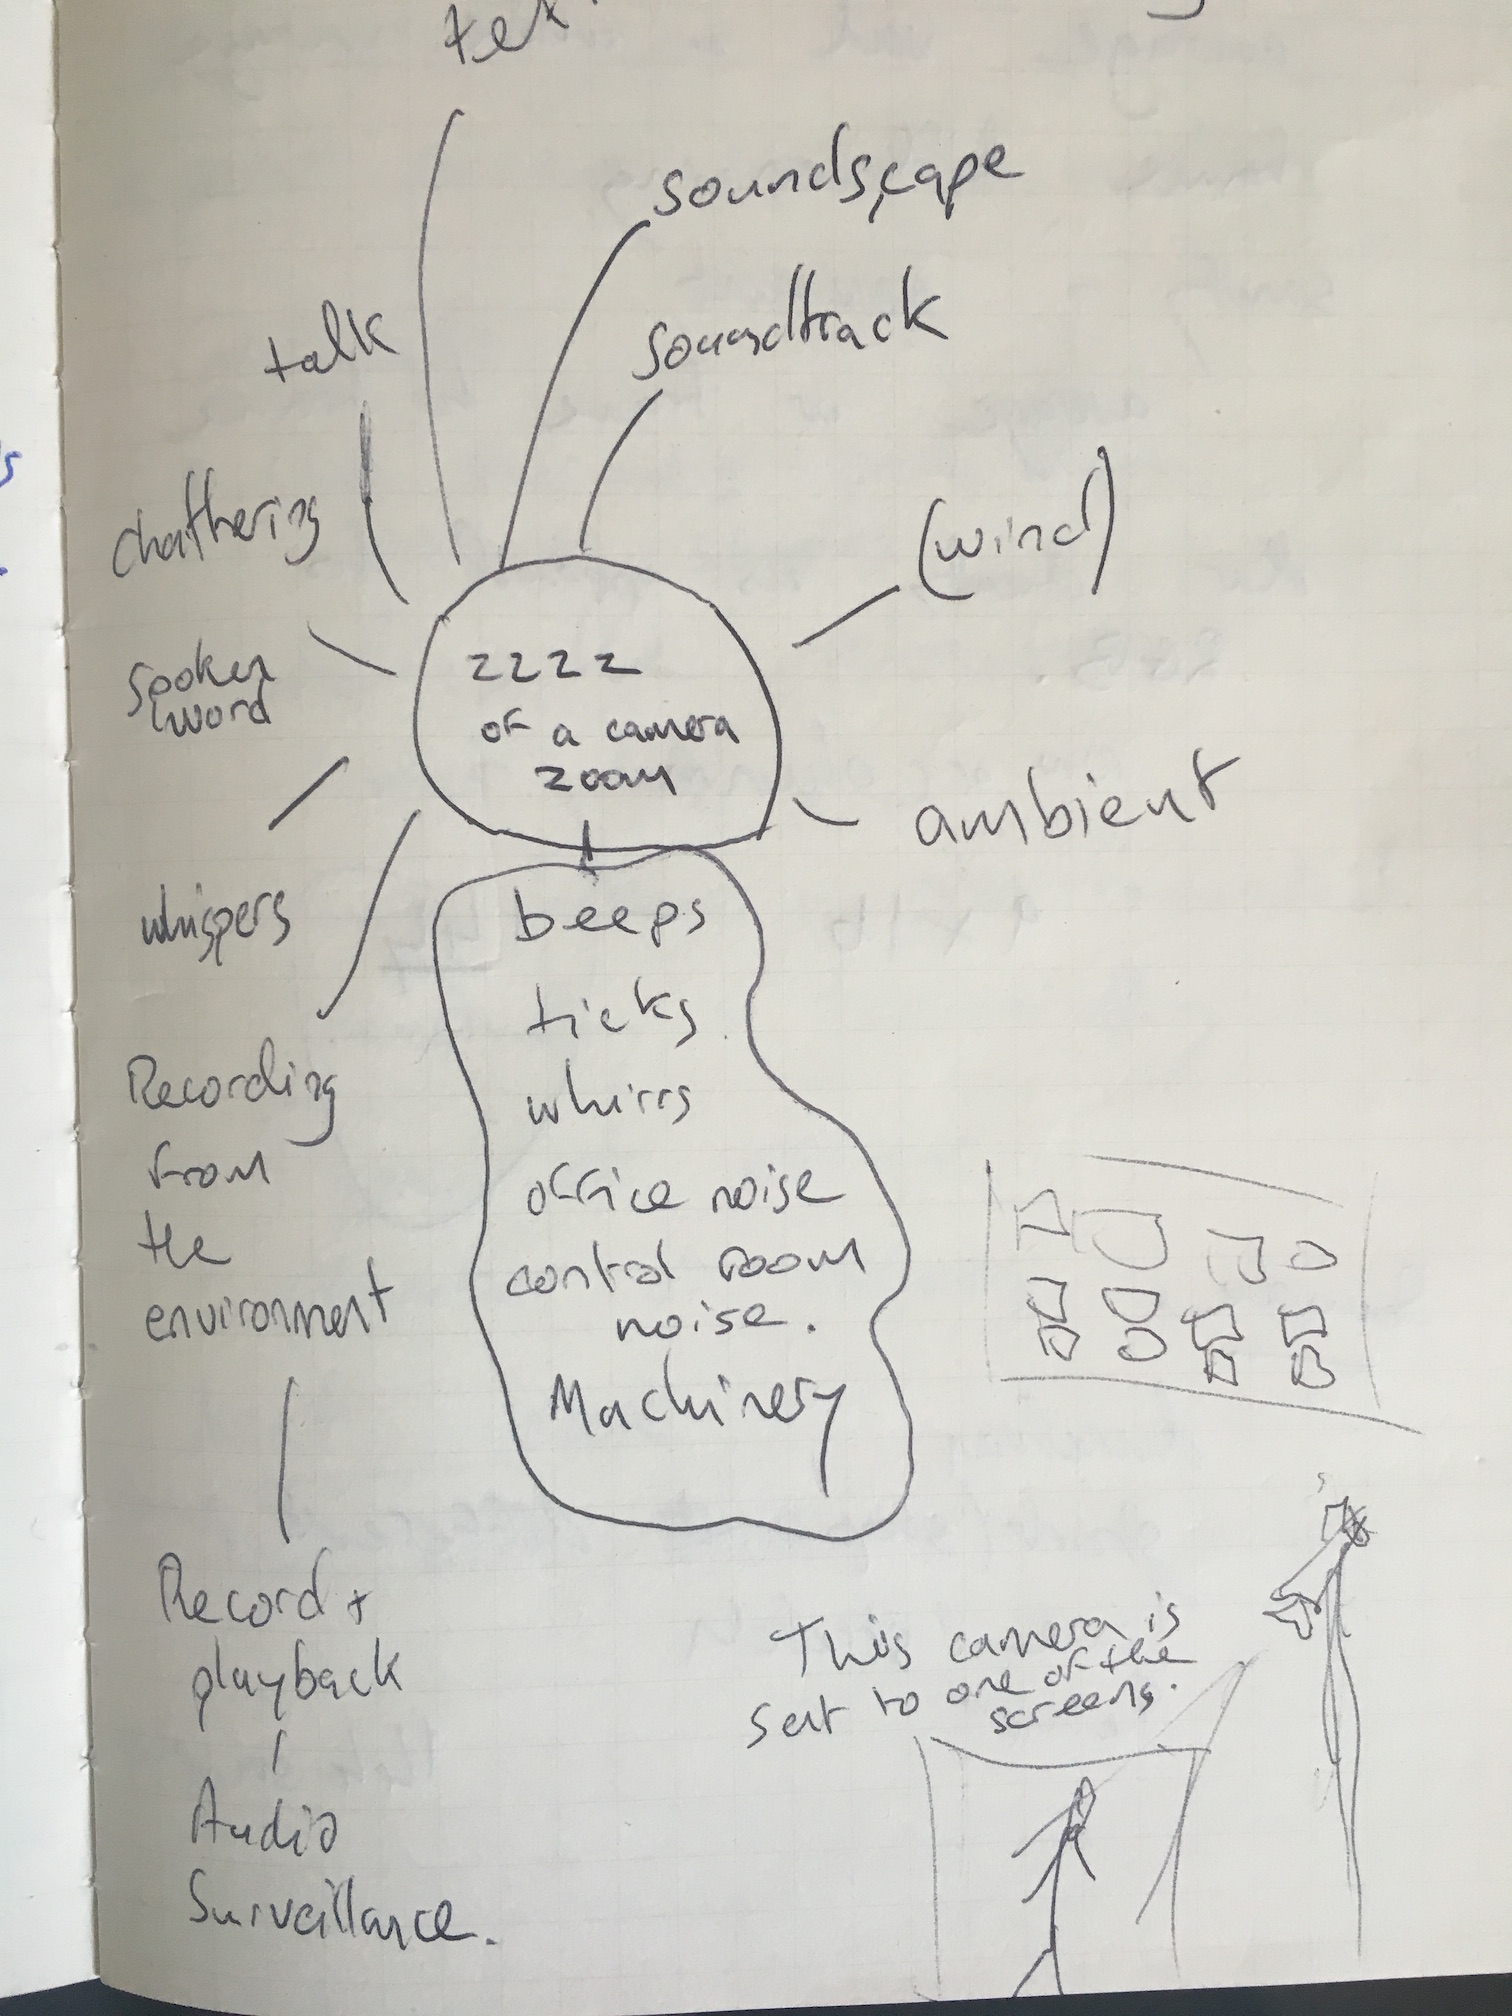 soundscape
soundtrack
talk
(wind)
chathering
zzzz
of a camera
zoom
spoken
word
ambient
whispers
beeps
ticks
whirrs
office noise
control room
noise.
Machinery
Recording
from
the
environment
Record +
playback
Audio
Surveillance.
This camera is
sent to one of the
screens.